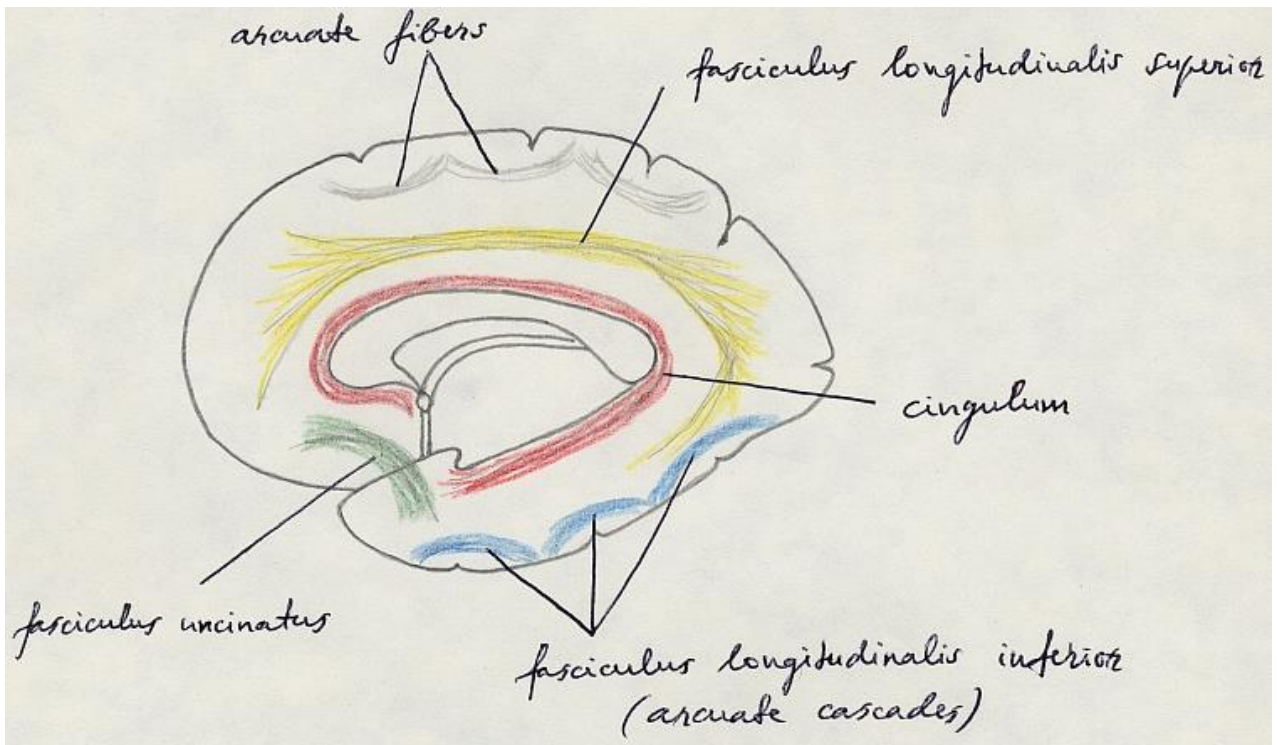 arcuate fibers
fasciculus longitudinalis superior
cingulum
fasciculus uncinatus
fasciculus longitudinalis inferior
(arcuate cascades)